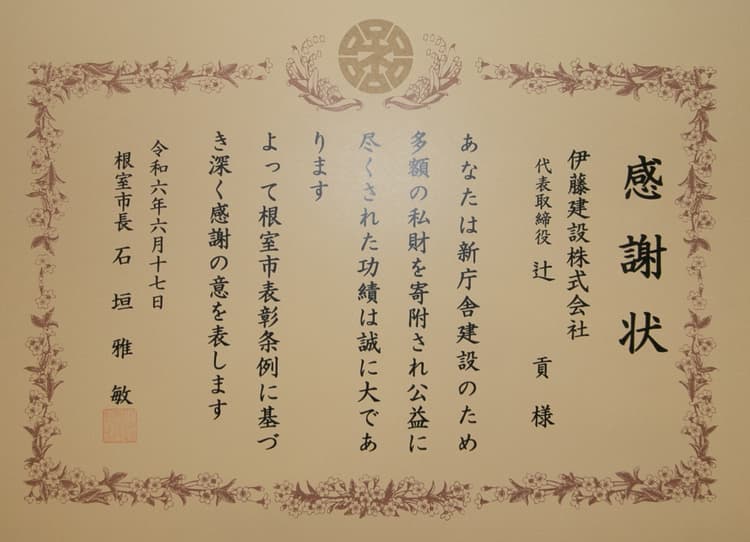 感謝状
伊藤建設株式会社
代表取締役 辻 貢 様
あなたは新庁舎建設のため
多額の私財を寄附され公益に
尽くされた功績は誠に大であ
ります
よって根室市表彰条例に基づ
き深く感謝の意を表します
令和六年六月十七日
根室市長 石垣雅敏